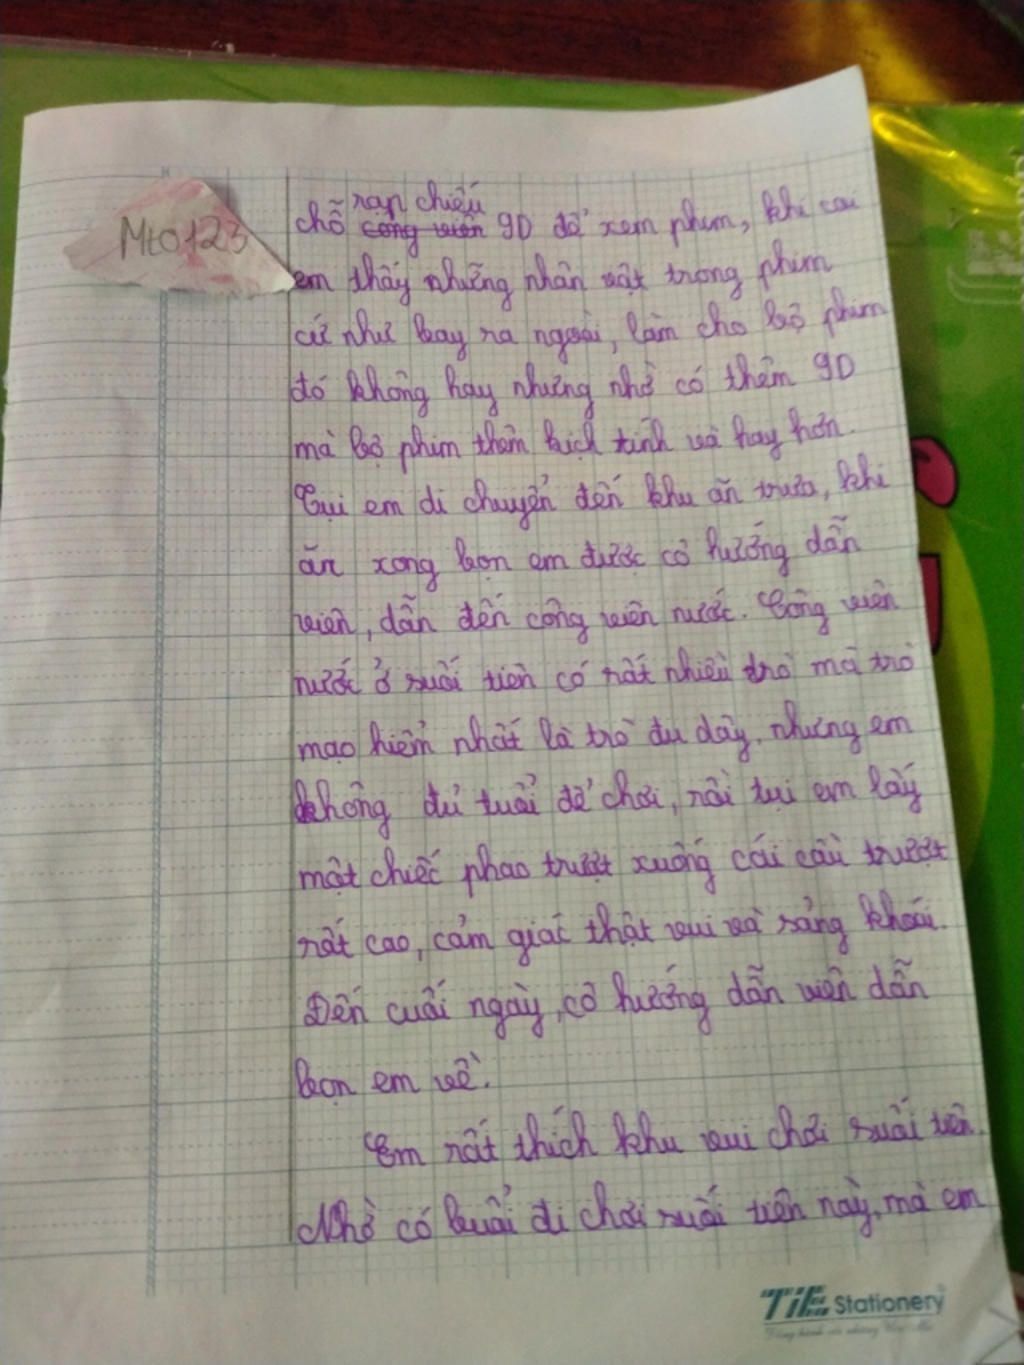 rạp chiếu
chỗ công viên 9D để xem phim, khi coi
Mt0123
em thấy những nhân vật trong phim
cứ như bay ra ngoài, làm cho bộ phim
đó không hay nhưng nhờ có thêm 9D
mà bộ phim thêm kịch tính và hay hơn.
Tụi em di chuyển đến khu ăn trưa, khi
ăn xong bọn em được cô hướng dẫn
viên, dẫn đến công viên nước. Công viên
nước ở suối tiên có rất nhiều trò mà trò
mạo hiểm nhất là trò đu dây, nhưng em
không đủ tuổi để chơi, rồi tụi em lấy
một chiếc phao trượt xuống cái cầu trượt
rất cao, cảm giác thật vui và sảng khoái.
Đến cuối ngày, cô hướng dẫn viên dẫn
bọn em về.
Em rất thích khu vui chơi suối tiên.
Nhờ có buổi đi chơi suối tiên này, mà em
TiE Stationery